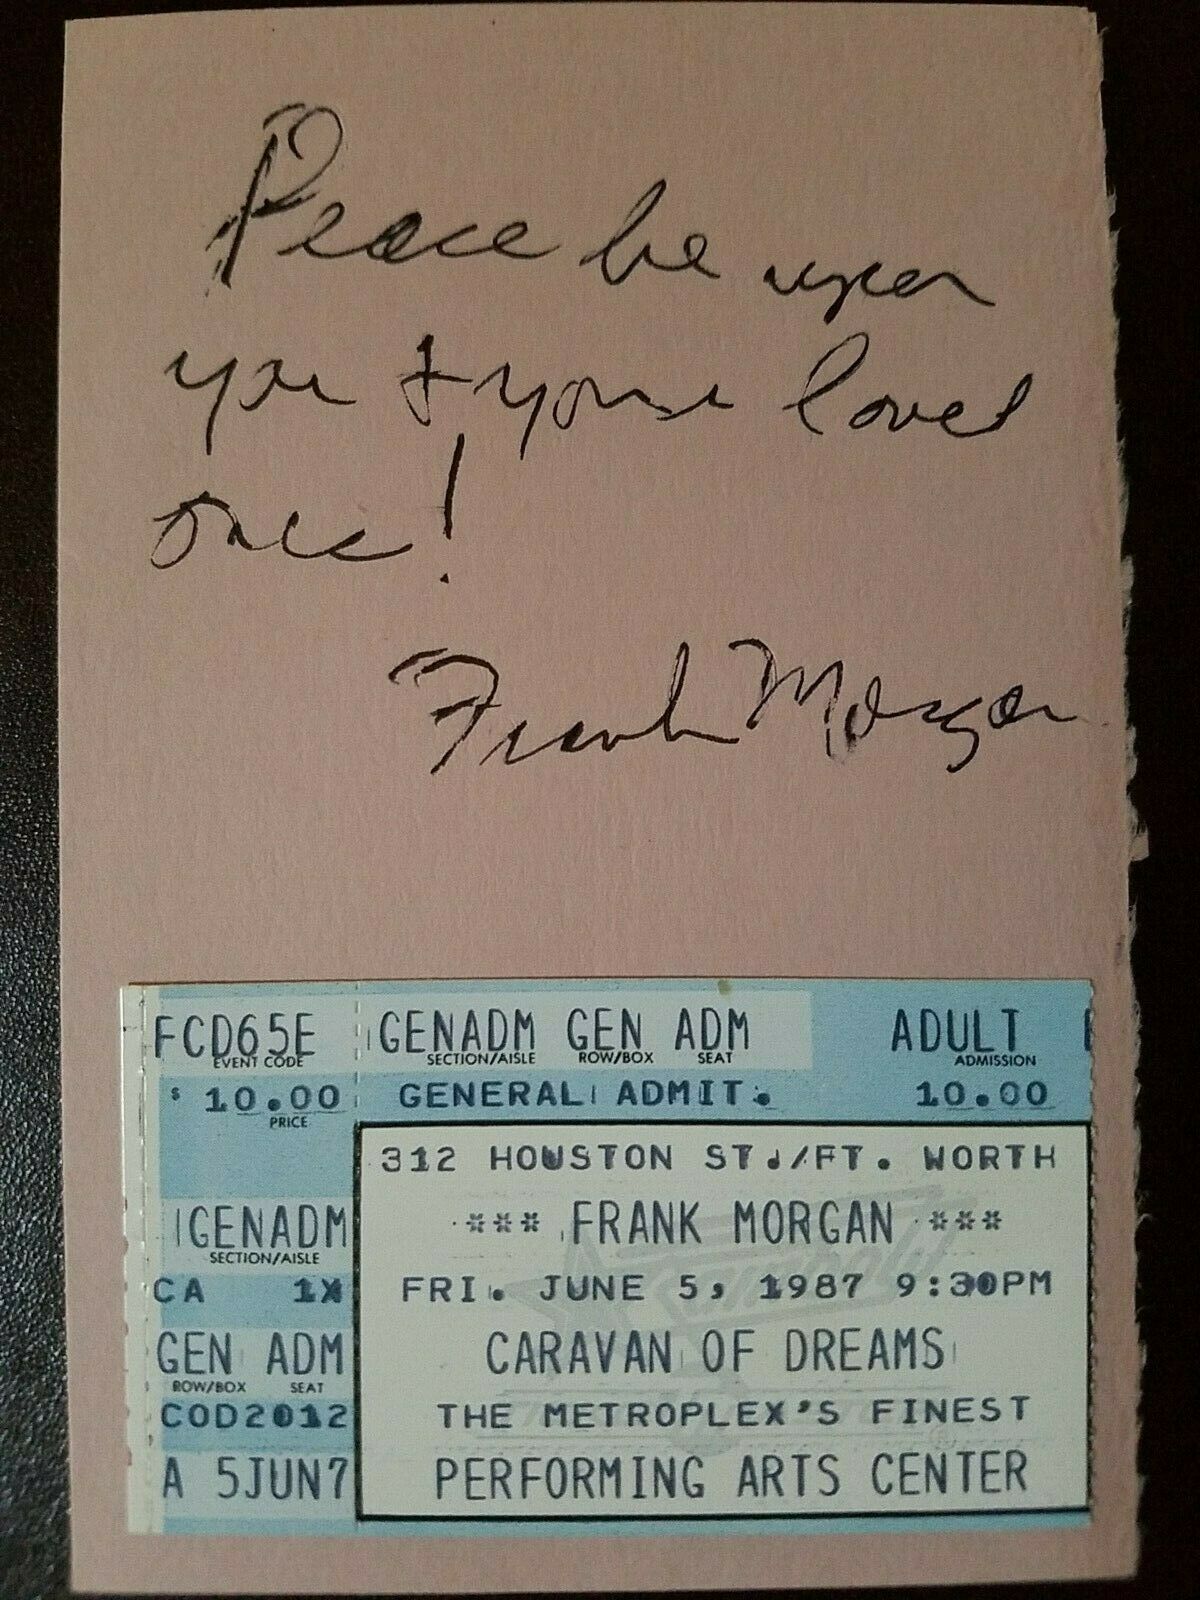 Peace be upon
you & your loved
ones!
Frank Morgan
FCD65E
EVENT CODE
$ 10.00
PRICE
GENADM
SECTION/AISLE
CA 1X
GEN ADM
ROW/BOX SEAT
COD2012
A 5JUN7
GENADM GEN ADM ADULT
SECTION/AISLE ROW/BOX SEAT ADMISSION
GENERAL ADMIT. 10.00
312 HOUSTON ST./FT. WORTH
*** FRANK MORGAN ***
FRI. JUNE 5, 1987 9:30PM
CARAVAN OF DREAMS
THE METROPLEX'S FINEST
PERFORMING ARTS CENTER